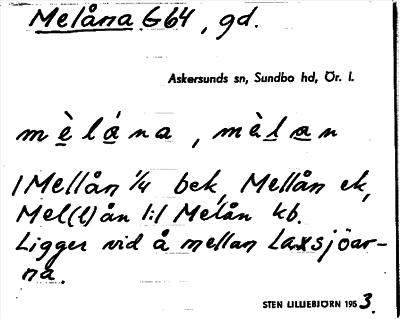 Melåna G64, gd.
Askersunds sn, Sundbo hd, Ör. l.
mèlåna, mèlan
/Mellån 1/4 bek, Mellån ek,
Mel(l)ån 1:1 Melån kb.
Ligger vid å mellan Laxsjöar-
na.
STEN LILLIEBJÖRN 1953.